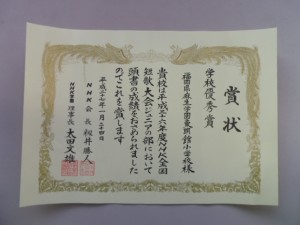 賞状
学校優秀賞
福岡県麻生学園東明館小学校様
貴校は平成二十六年度NHK全国
短歌大会ジュニアの部において
頭書の成績をおさめられました
のでこれを賞します
平成二十七年一月二十四日
NHK会長 籾井勝人
NHK学園 理事長 太田文雄